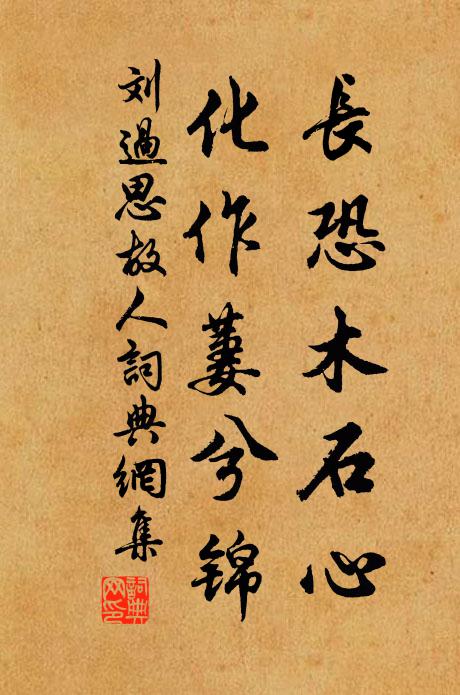 長恐木石心
化作萋兮錦
刘過思故人詞典網集
詞典网印